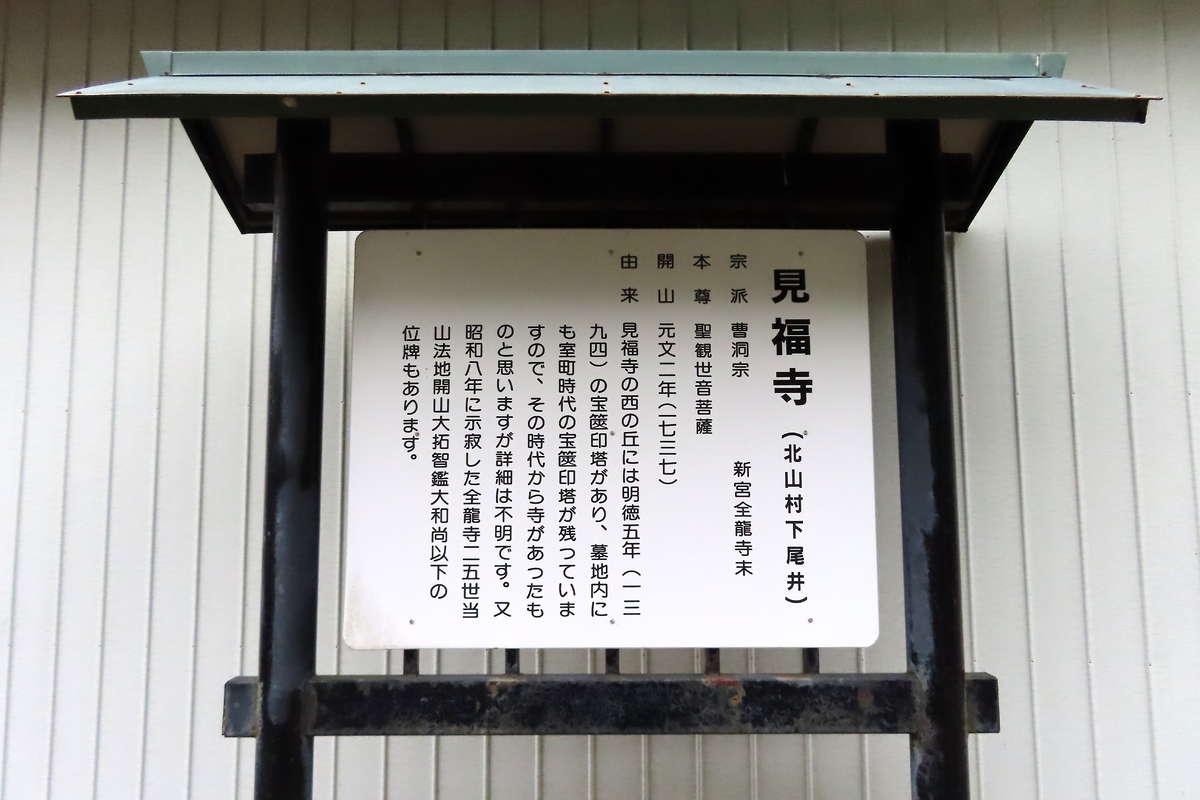 見福寺（北山村下尾井）
宗派 曹洞宗 新宮全龍寺末
本尊 聖観世音菩薩
開山 元文二年（一七三七）
由来 見福寺の西の丘には明徳五年（一三
九四）の宝篋印塔があり、墓地内に
も室町時代の宝篋印塔が残っていま
すので、その時代から寺があったも
のと思いますが詳細は不明です。又
昭和八年に示寂した全龍寺二五世当
山法地開山大拓智鑑大和尚以下の
位牌もあります。